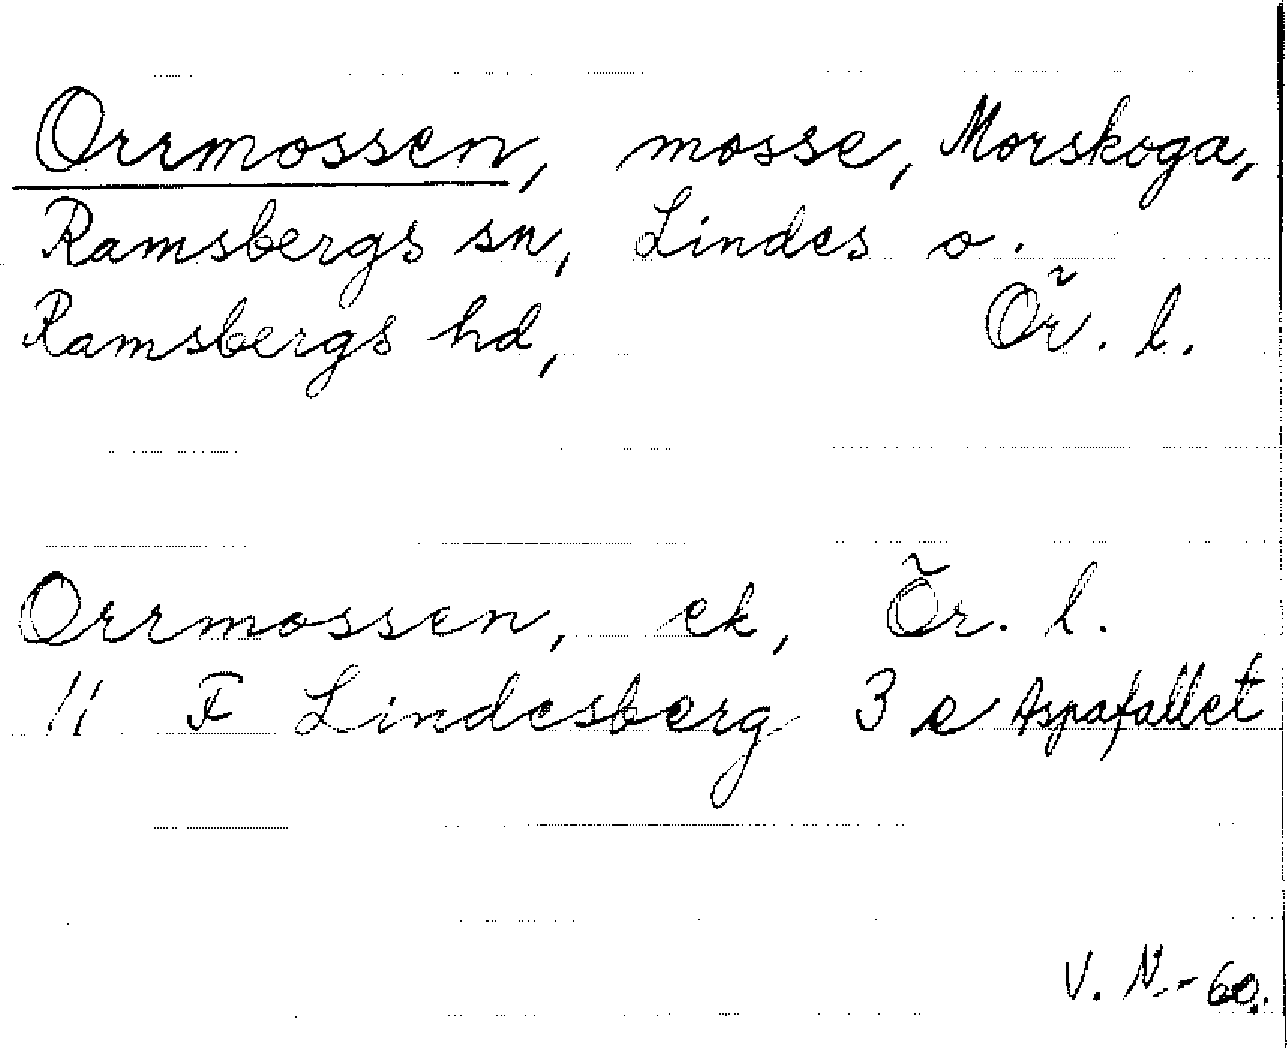 Orrmossen, mosse, Morskoga,
Ramsbergs sn, Lindes o.
Ramsbergs hd, Ör. l.
Orrmossen, ek, Ör. l.
11 F Lindesberg 3 e Aspafallet
V. N. - 60.